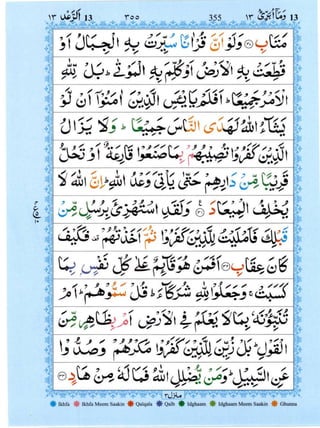 ١٣ اَلرَّعْد 13 ٣٥٥ 355 وَمَآ اُبَرِّئُ ١٣ 13
مَتَابِ ۝ وَلَوْ اَنَّ قُرْاٰنًا سُيِّرَتْ بِهِ الْجِبَالُ اَوْ
قُطِّعَتْ بِهِ الْاَرْضُ اَوْ كُلِّمَ بِهِ الْمَوْتٰى ؕ بَلْ لِّلّٰهِ
الْاَمْرُ جَمِيْعًا ؕ اَفَلَمْ يَايْـَٔسِ الَّذِيْنَ اٰمَنُوْۤا اَنْ لَّوْ
يَشَآءُ اللّٰهُ لَهَدَى النَّاسَ جَمِيْعًا ؕ وَلَا يَزَالُ
الَّذِيْنَ كَفَرُوْا تُصِيْبُهُمْ بِمَا صَنَعُوْا قَارِعَةٌ اَوْ تَحُلُّ
قَرِيْبًا مِّنْ دَارِهِمْ حَتّٰى يَاْتِيَ وَعْدُ اللّٰهِ ؕ اِنَّ اللّٰهَ لَا
يُخْلِفُ الْمِيْعَادَ ۝ وَلَقَدِ اسْتُهْزِئَ بِرُسُلٍ مِّنْ
قَبْلِكَ فَاَمْلَيْتُ لِلَّذِيْنَ كَفَرُوْا ثُمَّ اَخَذْتُهُمْ فَكَيْفَ
كَانَ عِقَابِ ۝ اَفَمَنْ هُوَ قَآئِمٌ عَلٰى كُلِّ نَفْسٍۭ بِمَا
كَسَبَتْ ۚ وَجَعَلُوْا لِلّٰهِ شُرَكَآءَ ؕ قُلْ سَمُّوْهُمْ ؕ اَمْ
تُنَبِّـُٔوْنَهٗ بِمَا لَا يَعْلَمُ فِى الْاَرْضِ اَمْ بِظَاهِرٍ مِّنَ
الْقَوْلِ ؕ بَلْ زُيِّنَ لِلَّذِيْنَ كَفَرُوْا مَكْرُهُمْ وَصُدُّوْا
عَنِ السَّبِيْلِ ؕ وَمَنْ يُّضْلِلِ اللّٰهُ فَمَا لَهٗ مِنْ هَادٍ ۝
منزل ٣
Ikhfa Ikhfa Meem Saakin Qalqala Qalb Idghaam Idghaam Meem Saakin Ghunna